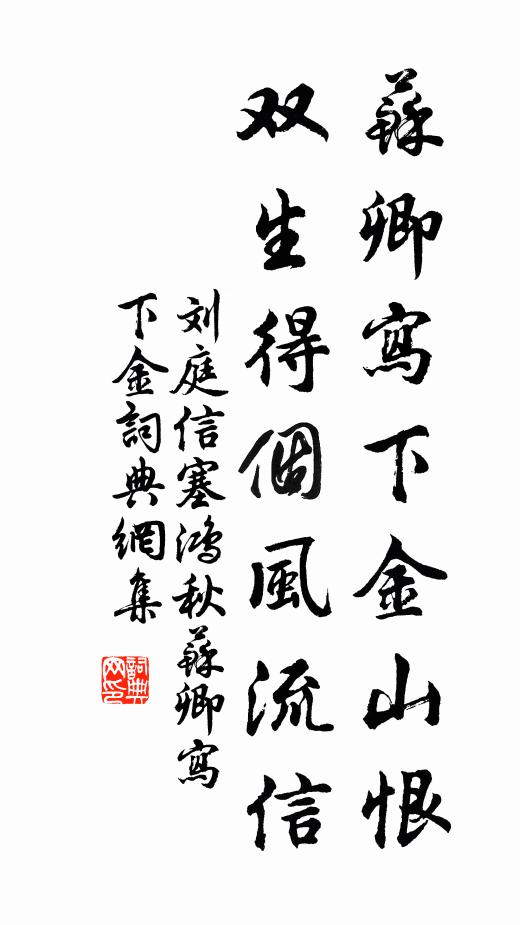 蘇卿寫下金山恨
双生得個風流信
刘庭信塞鴻秋蘇卿寫
下金詞典網集
詞典网印